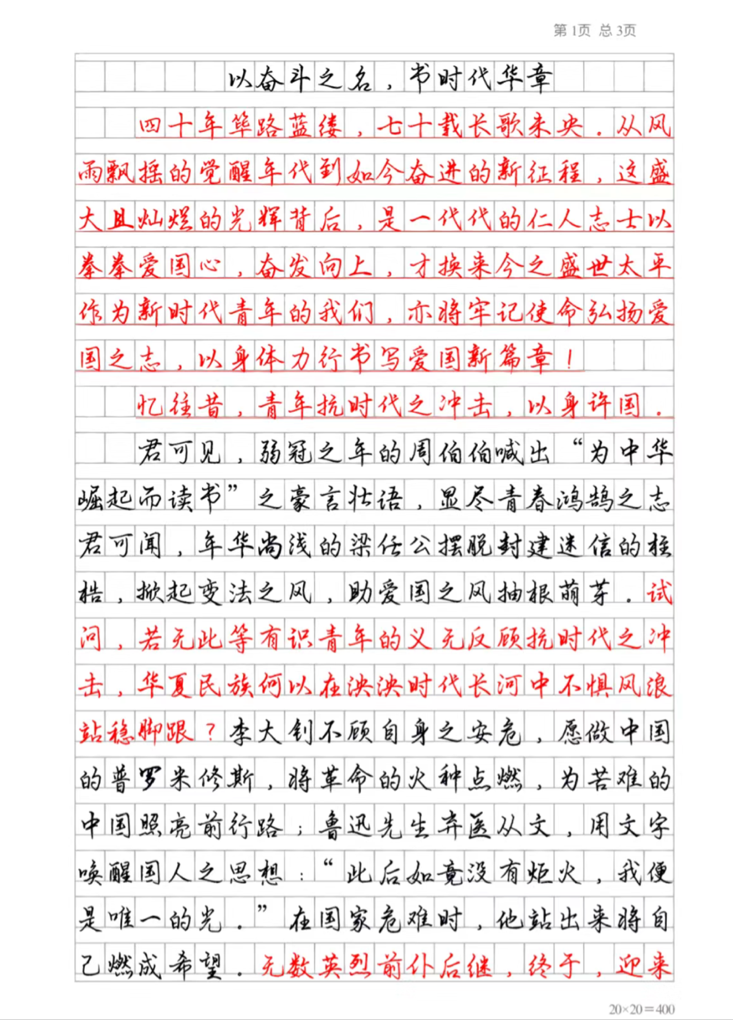 第1页 总3页
以奋斗之名，书时代华章
四十年筚路蓝缕，七十载长歌未央．从风
雨飘摇的觉醒年代到如今奋进的新征程，这盛
大且灿烂的光辉背后，是一代代的仁人志士以
拳拳爱国心，奋发向上，才换来今之盛世太平
作为新时代青年的我们，亦将牢记使命弘扬爱
国之志，以身体力行书写爱国新篇章！
忆往昔，青年抗时代之冲击，以身许国．
君可见，弱冠之年的周伯伯喊出“为中华
崛起而读书”之豪言壮语，显尽青春鸿鹄之志
君可闻，年华尚浅的梁任公摆脱封建迷信的桎
梏，掀起变法之风，助爱国之风抽根萌芽．试
问，若无此等有识青年的义无反顾抗时代之冲
击，华夏民族何以在泱泱时代长河中不惧风浪
站稳脚跟？李大钊不顾自身之安危，愿做中国
的普罗米修斯，将革命的火种点燃，为苦难的
中国照亮前行路；鲁迅先生弃医从文，用文字
唤醒国人之思想：“此后如竟没有炬火，我便
是唯一的光．”在国家危难时，他站出来将自
己燃成希望．无数英烈前仆后继，终于，迎来
20×20=400